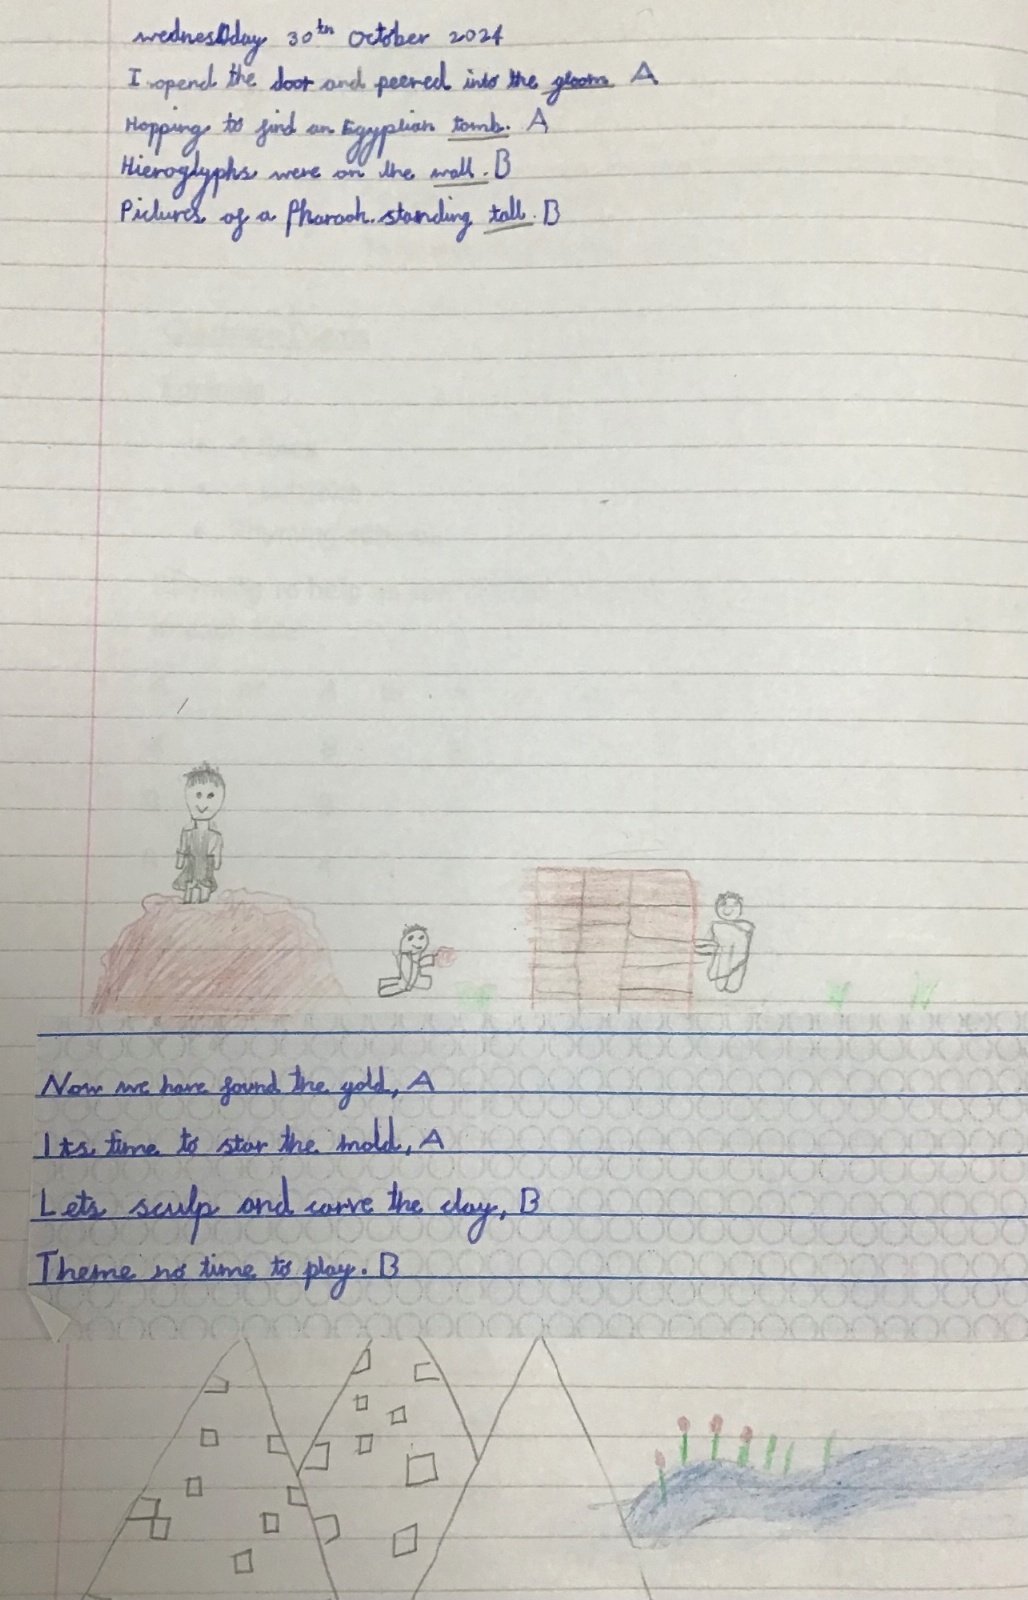 wednesday 30th October 2024
I opend the door and peered into the gloom A
Hopping to find an Egyptian tomb. A
Hieroglyphs were on the wall. B
Pictures of a Pharaoh standing tall. B
Now we have found the gold, A
Its time to star the mold, A
Lets sculp and carve the clay, B
Theme no time to play. B